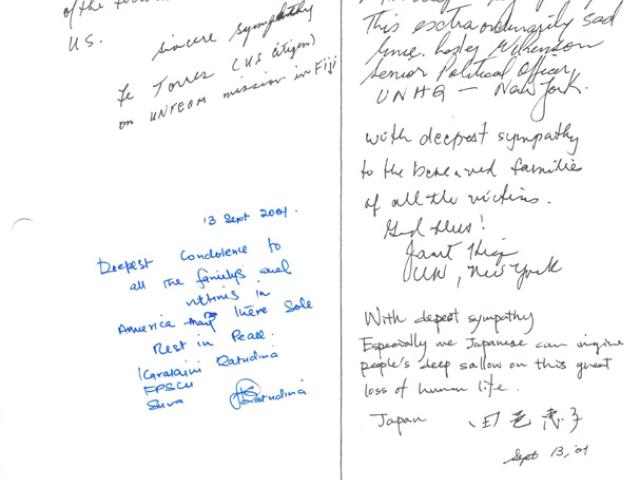 of the
U.S.
Sincere sympathy
Fe Torres (US Citizen)
on UNFEOM mission in Fiji
13 Sept 2001.
Deepest Condolence to
all the familys and
victims in
America may there Sole
Rest in Peace.
Ratudina
FPSCU
Suva Ratudina
This extraordinarily sad
time. Wilkinson
Senior Political Officer
UNHQ — New York.
with deepest sympathy
to the bereaved families
of all the victims.
God bless!
Janet
UN, New York
With depest sympathy
Especially we Japanese can imgine
people's deep sallow on this great
loss of human life.
Japan
Sept 13, '01